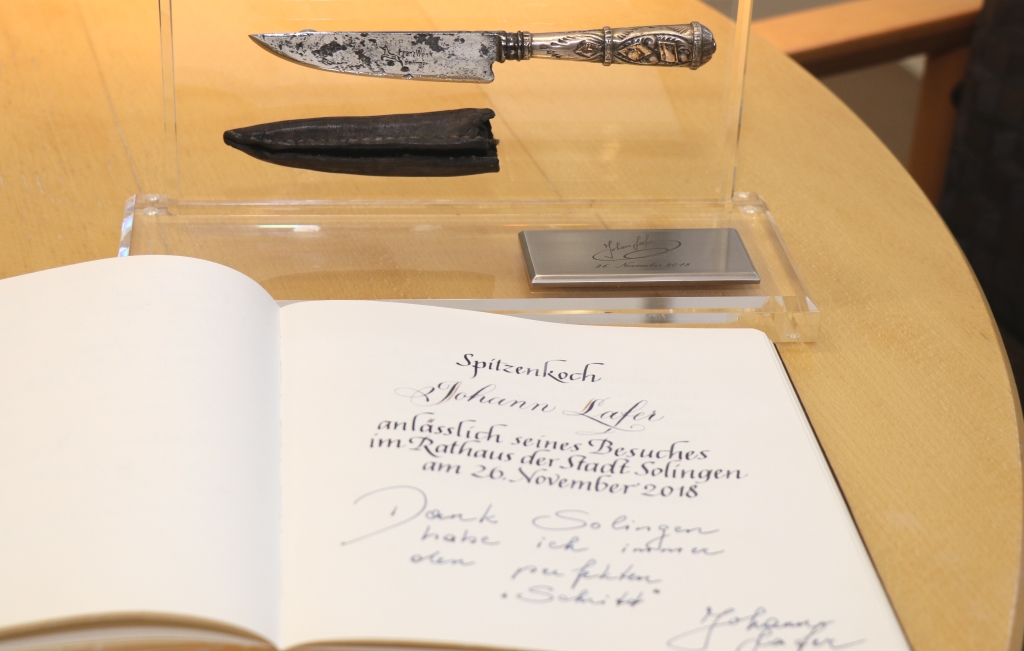 Solingen
Johann Lafer
26. November 2018
Spitzenkoch
Johann Lafer
anlässlich seines Besuches
im Rathaus der Stadt Solingen
am 26. November 2018
Dank Solingen
habe ich immer
den perfekten
"Schnitt"
Johann
Lafer